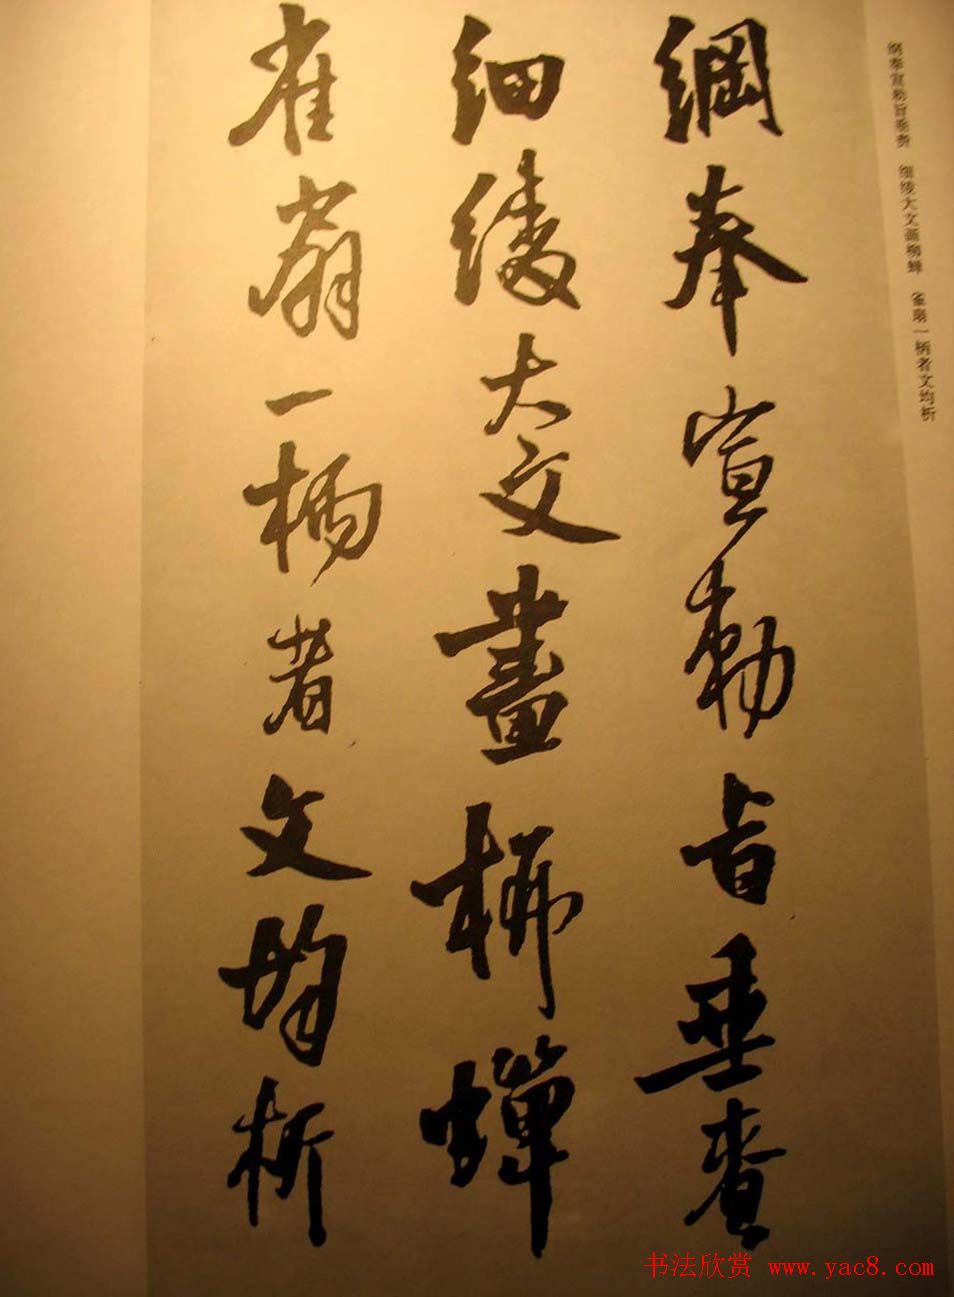 綱奉宣勅旨垂賚
細綾大文畫柳蟬
雀扇一柄者文均析
纲奉宣勅旨垂赉 细绫大文画柳蝉 雀扇一柄者文均析
书法欣赏 www.yac8.com